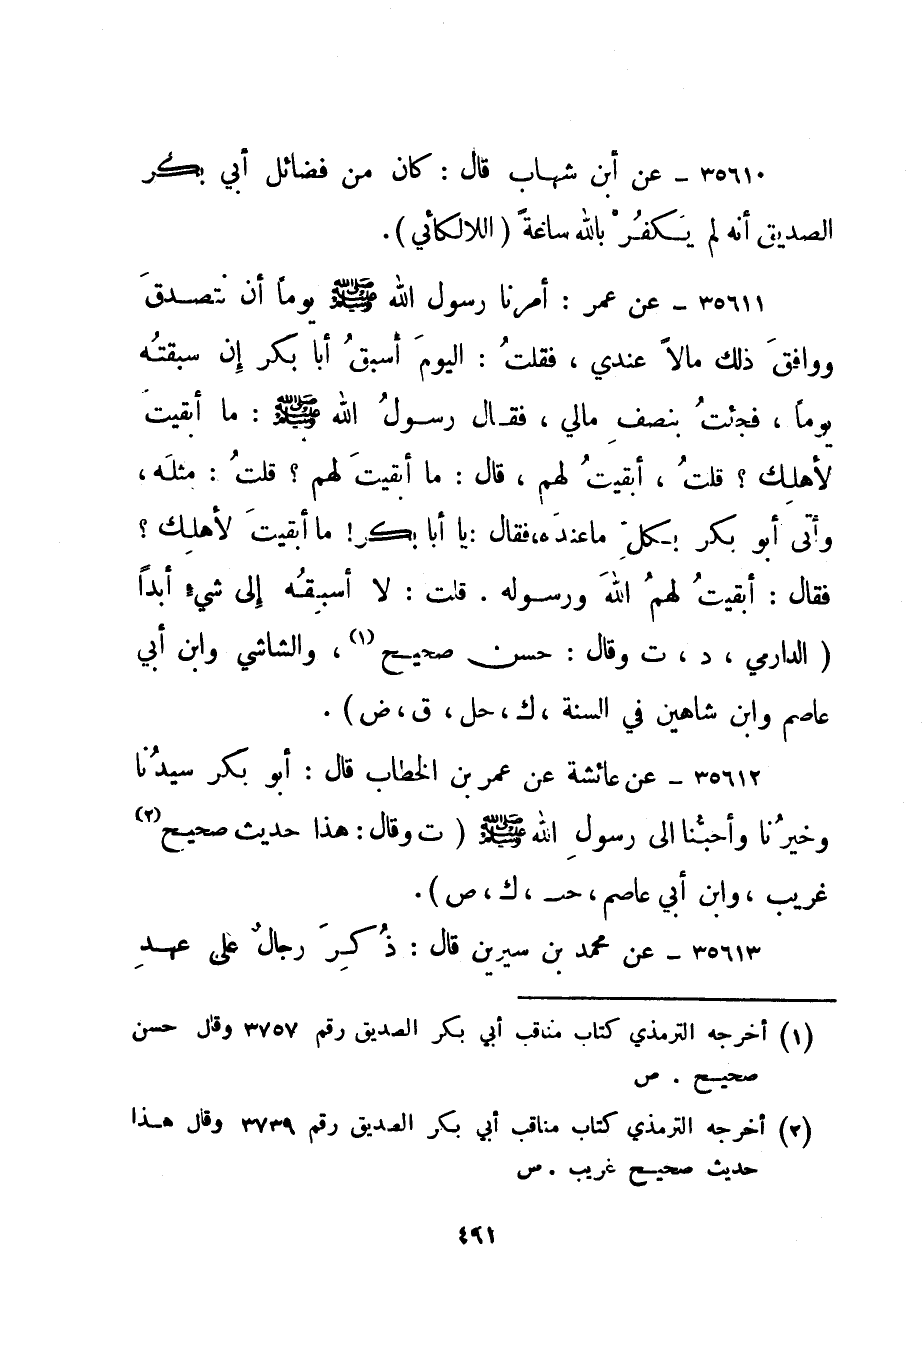 ٣٥٦١٠ ـ عن أبن شهاب قال : كان من فضائل أبي بكر
الصديق أنه لم يَكفُرْ بالله ساعةً ( اللالكأئي ) .
٣٥٦١١ ـ عن عمر : أمرنا رسول الله ﷺ يوماً أن نتصدقَ
ووافقَ ذلك مالاً عندي ، فقلتُ : اليومَ أسبقُ أبا بكر إن سبقتُه
يوماً ، فجئتُ بنصفِ مالي ، فقال رسولُ الله ﷺ : ما أبقيتَ
لأهلِك ؟ قلتُ ، أبقيتُ لهم ، قال : ما أبقيتَ لهم ؟ قلتُ : مثلَه ،
وأتى أبو بكر بكلِّ ماعندَه،فقال :يا أبا بكر! ما أبقيتَ لأهلِك ؟
فقال : أبقيتُ لهمُ اللهَ ورسوله . قلت : لا أسبقُه إلى شيء أبداً
( الدارمي ، د ، ت وقال : حسن صحيح (١) ، والشاشي وابن أبي
عاصم وابن شاهين في السنة ، ك ، حل ، ق ، ض ) .
٣٥٦١٢ ـ عن عائشة عن عمر بن الخطاب قال : أبو بكر سيدُنا
وخيرُنا وأحبُّنا الى رسولِ الله ﷺ ( ت وقال : هذا حديث صحيح (٢)
غريب ، وابن أبي عاصم ، حب ، ك ، ص ) .
٣٥٦١٣ ـ عن محمد بن سيرين قال : ذُكِرَ رجالٌ على عهدِ
(١) أخرجه الترمذي كتاب مناقب أبي بكر الصديق رقم ٣٧٥٧ وقال حسن
صحيح . ص
(٢) أخرجه الترمذي كتاب مناقب أبي بكر الصديق رقم ٣٧٣٩ وقال هذا
حديث صحيح غريب . ص
٤٩١